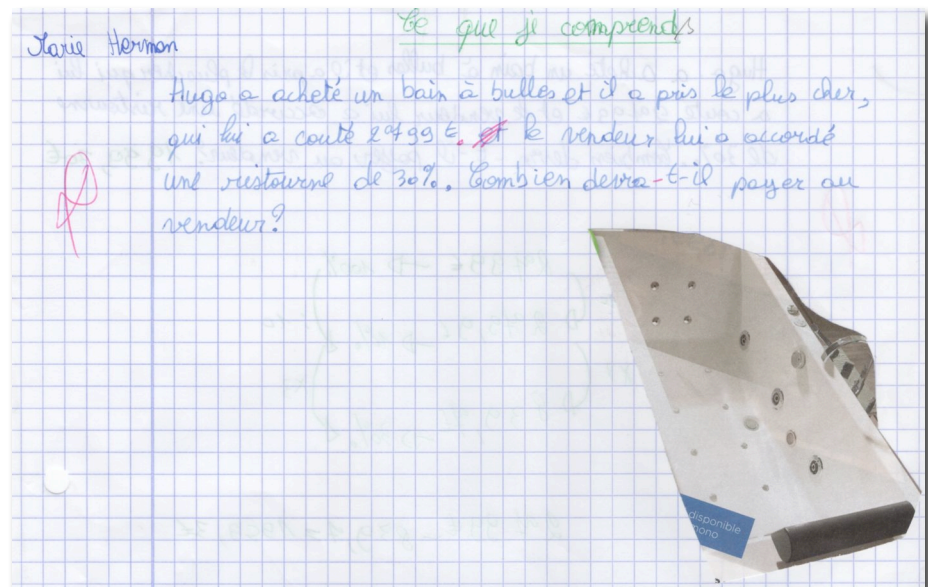 Ce que je comprends
Marie Herman
Hugo a acheté un bain à bulles et il a pris le plus cher,
qui lui a couté 2799 €. le vendeur lui a accordé
une ristourne de 30%. Combien devra-t-il payer au
vendeur?
disponible
mono